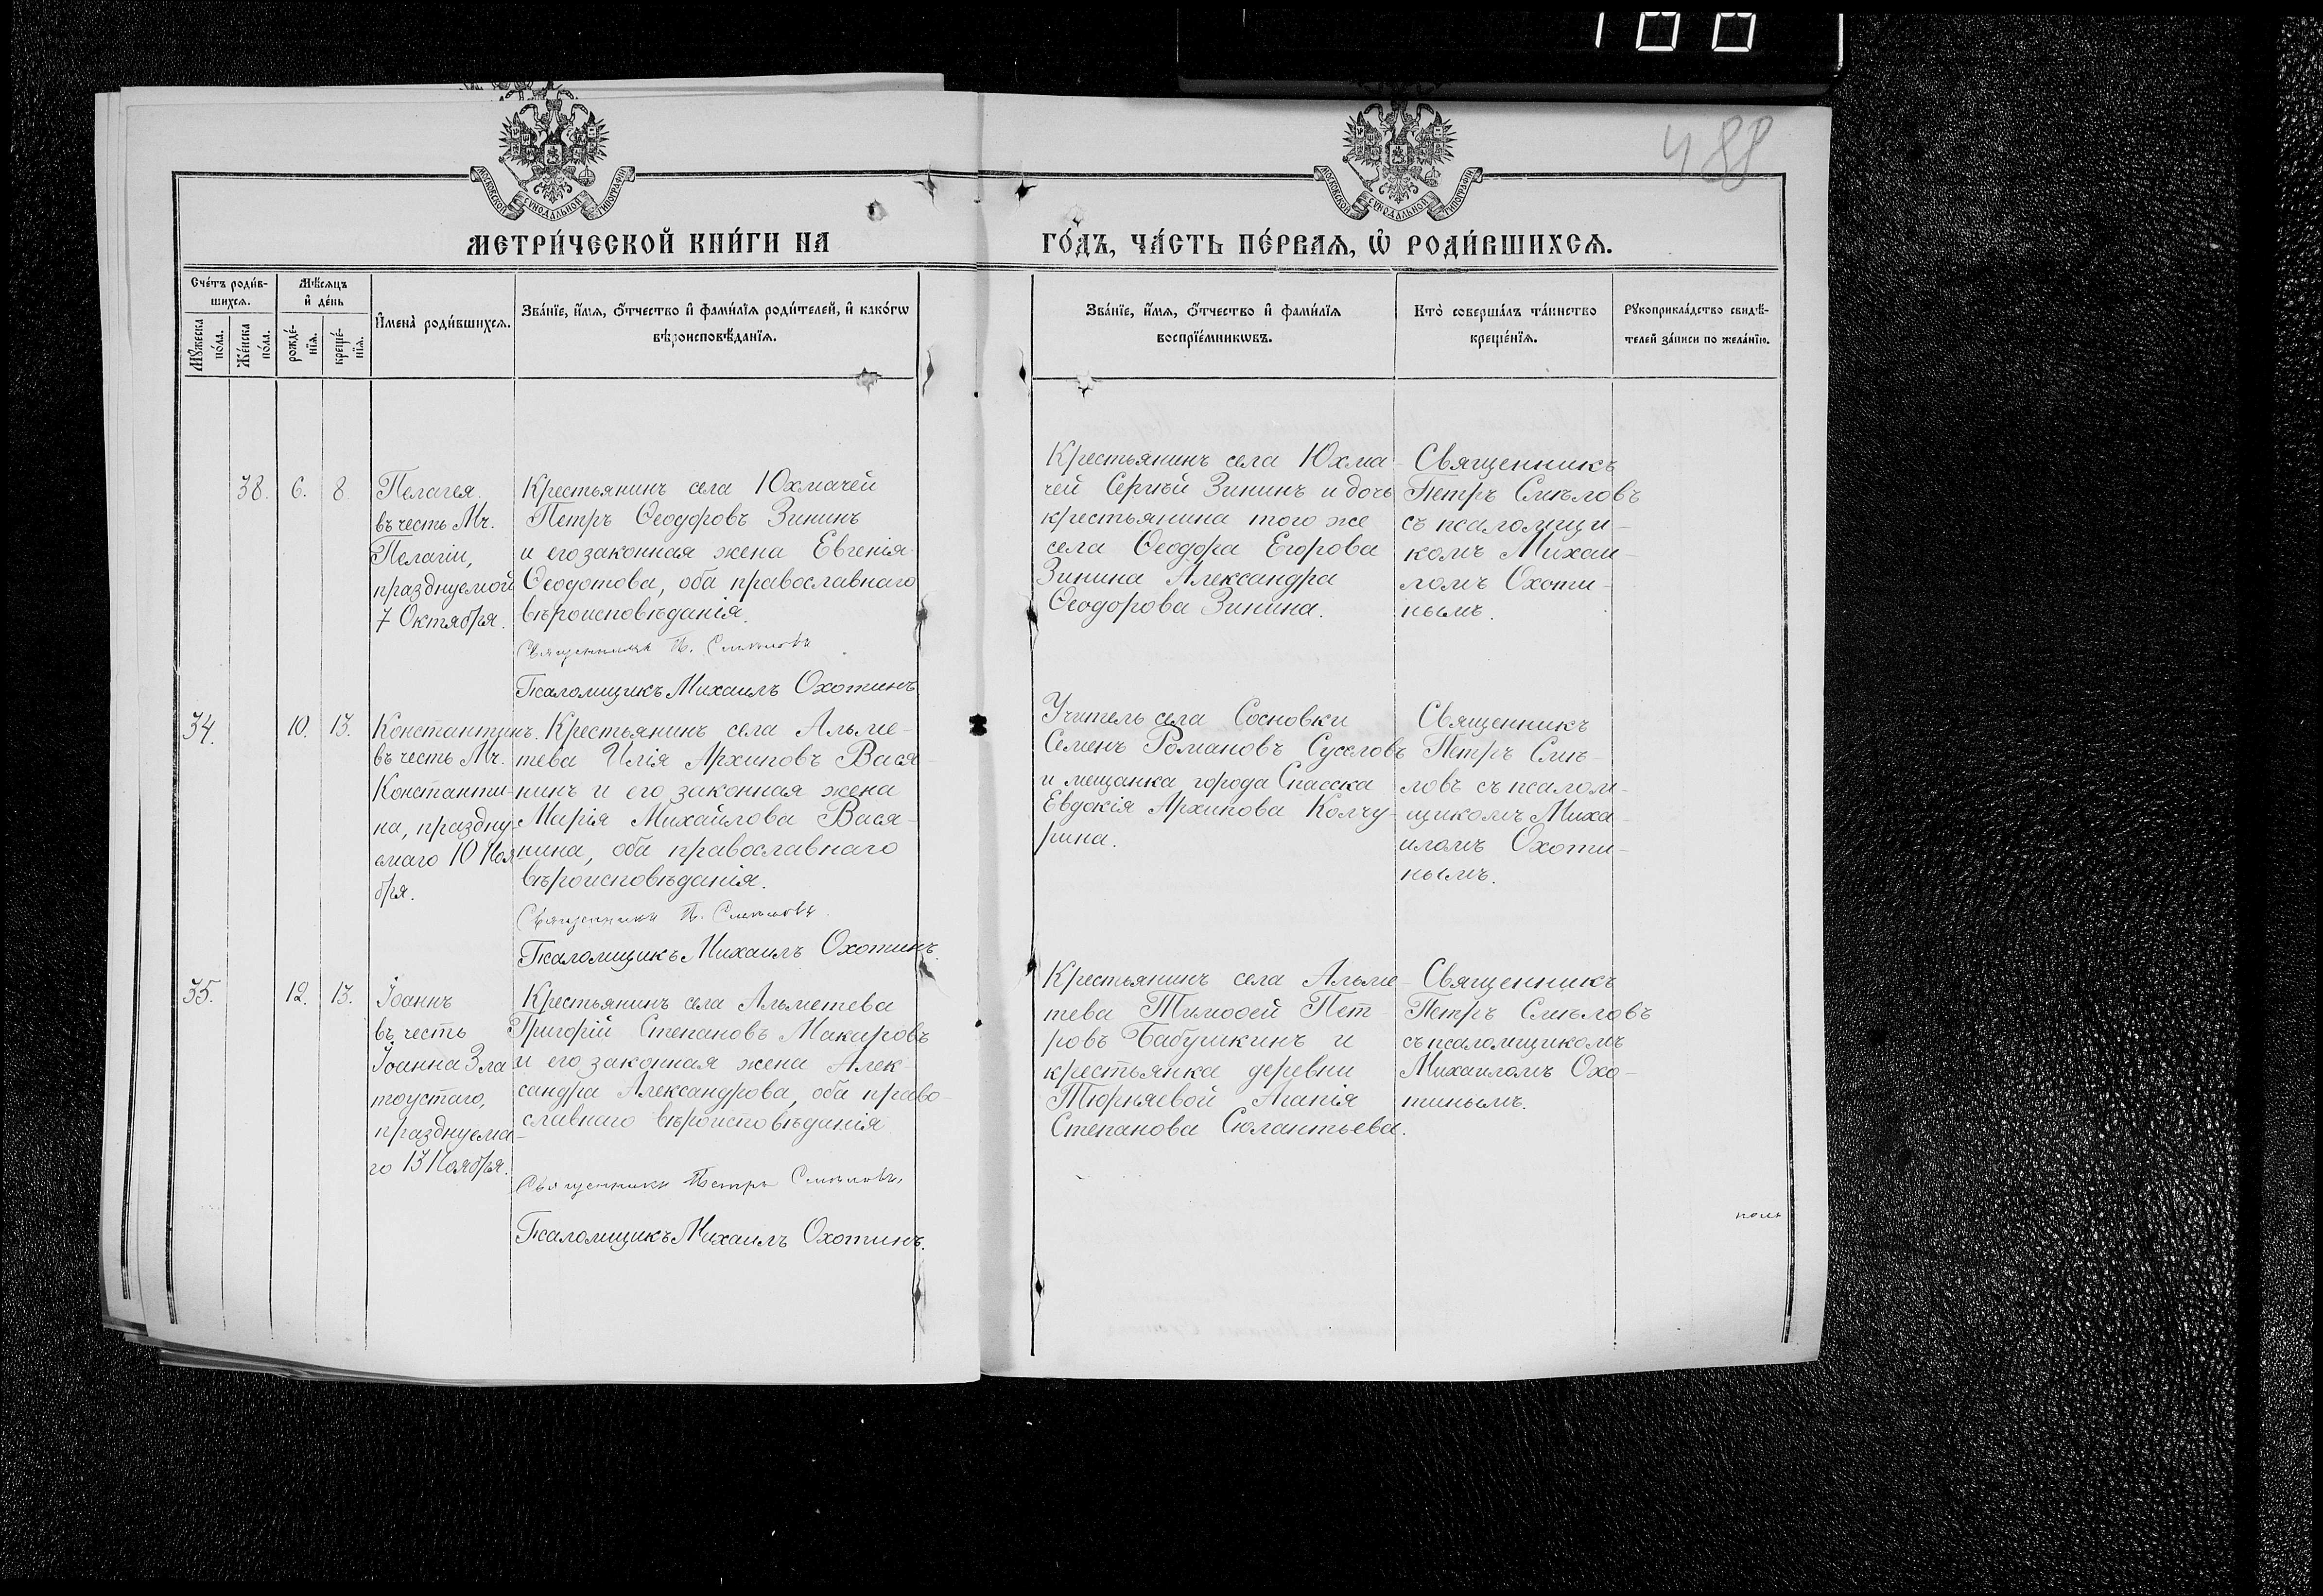 188
488
МОСКОВСКОЙ СУНОДАЛЬНОЙ ТИПОГРАФІИ
МОСКОВСКОЙ СУНОДАЛЬНОЙ ТИПОГРАФІИ
МЕТРИ́ЧЕСКОЙ КНИ́ГИ НА
ГО́ДЪ, ЧА́СТЬ ПЕ́РВАѦ, Ѽ РОДИ́ВШИХСѦ.
Сче́тъ роди́в-
шихсѧ.
Мꙋ́жеска
по́ла.
Же́нска
по́ла.
Мѣ́сѧцъ
и҆ де́нь
рожде́-
нїѧ.
креще́-
нїѧ.
И҆мена̀ роди́вшихсѧ.
Зва́нїе, и҆́мѧ, ѻ҆́тчество и҆ фами́лїѧ роди́телей, и҆ како́гѡ
вѣроисповѣ́данїѧ.
Зва́нїе, и҆́мѧ, ѻ҆́тчество и҆ фами́лїѧ
воспрїе́мникѡвъ.
Кто̀ соверша́лъ та́инство
креще́нїѧ.
Рꙋкоприкла́дство свидѣ́-
телей за́писи по жела́нїю.
38. 6. 8
Пелагея.
въ честь Мч.
Пелагіи,
празднуемой
7 Октября.
Крестьянинъ села Юхмачей
Петръ Ѳеодоровъ Зининъ
и его законная жена Евгенія
Ѳеодотова, оба православнаго
вѣроисповѣданія.
Священникъ П. Смѣловъ
Псаломщикъ Михаилъ Охотинъ
Крестьянинъ села Юхма-
чей Сергѣй Зининъ и дочь
крестьянина того же
села Ѳеодора Егорова
Зинина Александра
Ѳеодорова Зинина.
Священникъ
Петръ Смѣловъ
съ псаломщи-
комъ Михаи-
ломъ Охоти-
нымъ.
34. 10. 13.
Константинъ.
въ честь Мч.
Константи-
на, праздну-
емаго 10 Ноя
бря.
Крестьянинъ села Альме-
тева Илія Архиповъ Вася-
нинъ и его законная жена
Марія Михайлова Вася-
нина, оба православнаго
вѣроисповѣданія.
Священникъ П. Смѣловъ.
Псаломщикъ Михаилъ Охотинъ.
Учитель села Сосновки
Семенъ Романовъ Сусловъ
и мещанка города Спасска
Евдокія Архипова Колчу-
рина.
Священникъ
Петръ Смѣ-
ловъ съ псалом-
щикомъ Миха-
иломъ Охоти-
нымъ.
35. 12. 13.
Іоаннъ
въ честь
Іоанна Зла
тоустаго,
празднуема-
го 13 Ноября.
Крестьянинъ села Альметева
Григорій Степановъ Макаровъ
и его законная жена Алек-
сандра Александрова, оба право-
славнаго вѣроисповѣданія
Священникъ Петръ Смѣловъ,
Псаломщикъ Михаилъ Охотинъ.
Крестьянинъ села Альме-
тева Тимоѳей Пет
ровъ Бабушкинъ и
крестьянка деревни
Тюрняевой Агапія
Степанова Силантьева.
Священникъ
Петръ Смѣловъ
съ псаломщикомъ
Михаиломъ Охо-
тинымъ.